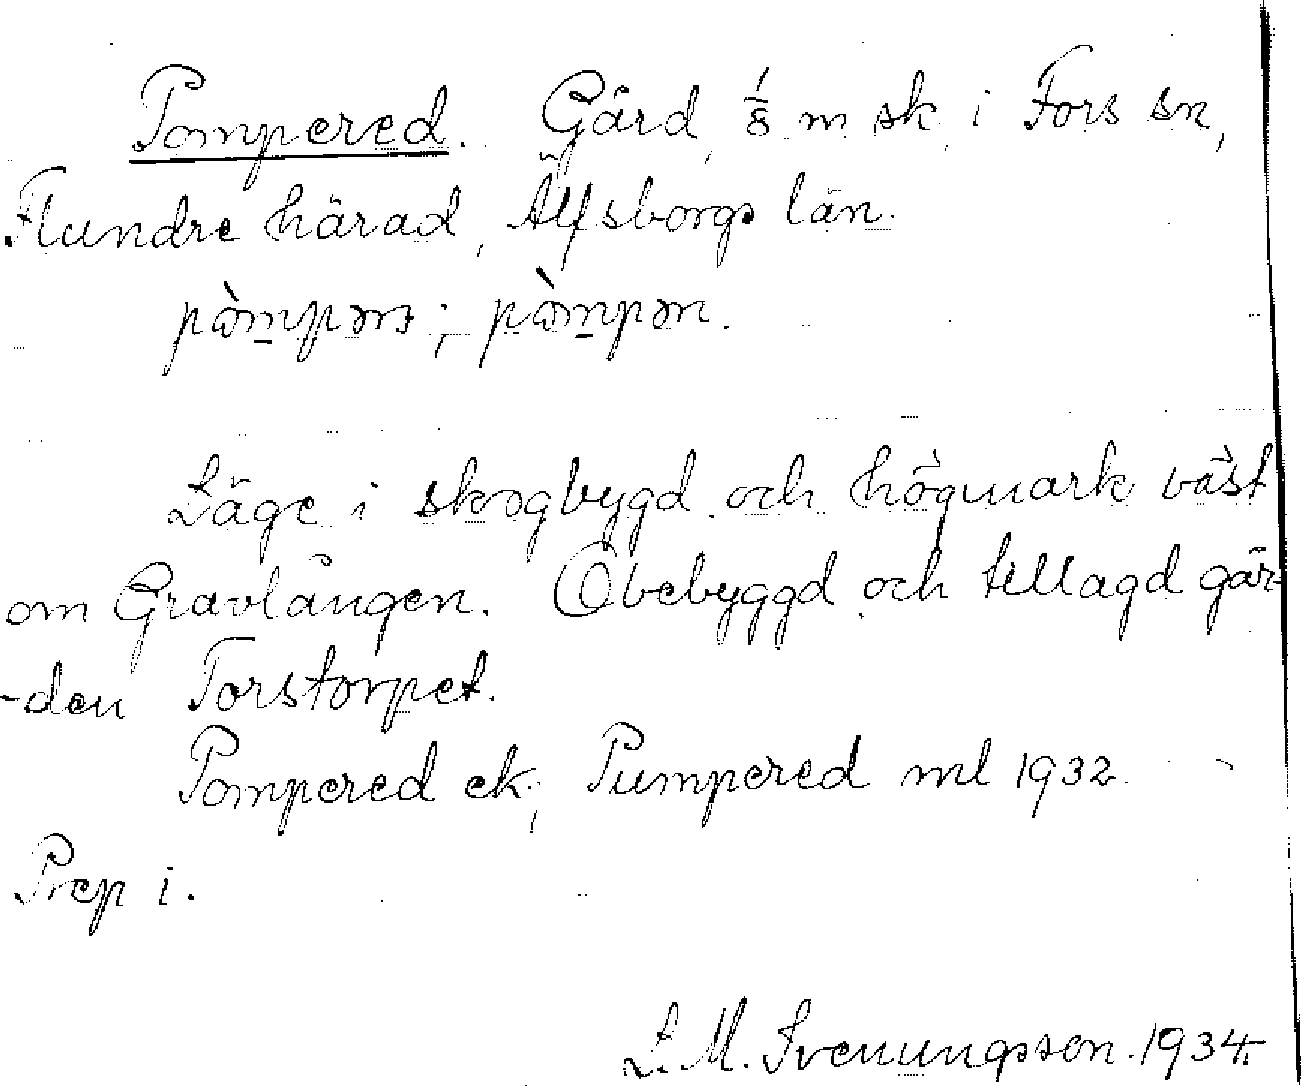 Pompered. Gård, 1/8 m sk i Fors sn,
Flundre härad, Älfsborgs län.
Läge i skogbygd och högmark väst
om Gravlången. Obebyggd och tillagd går-
-den Torstorpet.
Pompered ek; Pumpered ml 1932
Prep i.
L. M. Svenungsson. 1934.